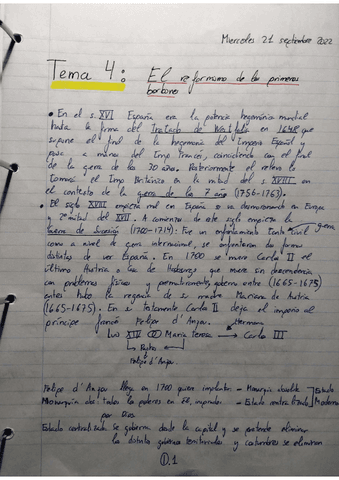 Miercoles 21 septiembre 2022
Tema 4: El reformismo de los primeros
borbones
• En el s. XVI España era la potencia hegemónica mundial
hasta la firma del Tratado de Westfalia en 1648 que
supone el final de la hegemonía del Imperio Español y
pasa a manos del Imp Francés, coincidiendo con el final
de la guerra de los 30 años. Posteriormente el relevo lo
tomará el Imp Británico en la mitad del s XVIII en
el contexto de la guerra de los 7 años (1756-1763).
• El siglo XVIII empieza mal en España si va desmoronando en Europa
y 2ª mitad del XVII. A comienzos de este siglo empieza la
Guerra de Sucesión (1700-1714): Fue un enfrentamiento tanto civil
como a nivel de guerra internacional, se enfrentaron dos formas
distintas de ver España. En 1700 se muere Carlos II el
último Austria o casa de Habsburgo que muere sin descendencia
con problemas físicos y permanentemente, gobierna entre (1665-1675)
antes hubo la regencia de su madre Mariana de Austria
(1665-1675). En su testamento Carlos II deja el imperio al
príncipe francés Felipe d'Anjou. Hermana
Luis XIV Maria Teresa → Carlos III
→ Felipe d'Anjou
Felipe d'Anjou llega en 1700 quien implanta: - Monarquía absoluta Estado
Monarquía abs: todos los poderes en FE, impuesto - Estado centralizado Moderno
por Dios
Estado centralizado se gobierna desde la capital y se pretende eliminar
los distintos gobiernos territoriales y costumbres se eliminan
1.1